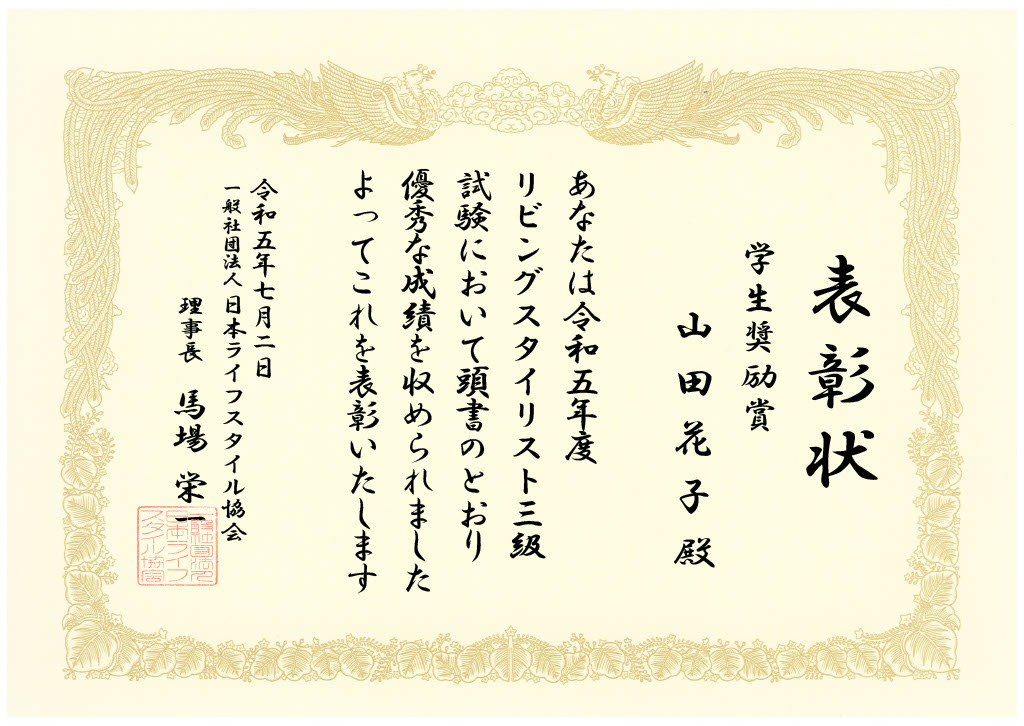 表彰状
学生奨励賞
山田花子殿
あなたは令和五年度
リビングスタイリスト三級
試験において頭書のとおり
優秀な成績を収められました
よってこれを表彰いたします
令和五年七月二日
一般社団法人日本ライフスタイル協会
理事長 馬場 栄一
日本ライフ
スタイル協会